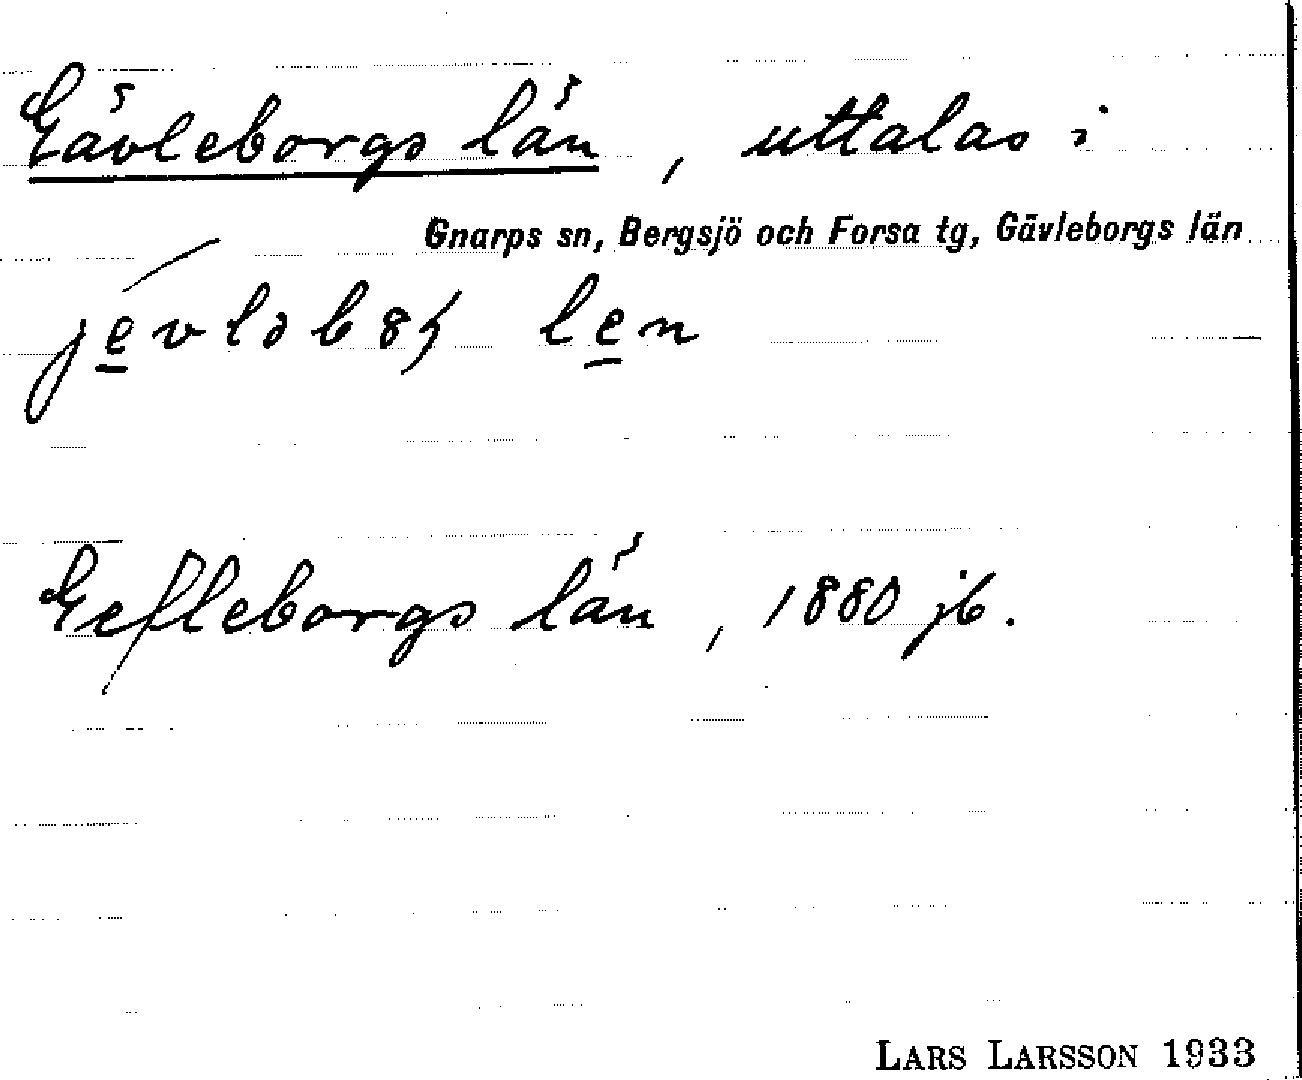 Gävleborgs län, uttalas i
Gnarps sn, Bergsjö och Forsa tg, Gävleborgs län
len
Gefleborgs län, 1880 jb.
LARS LARSSON 1933